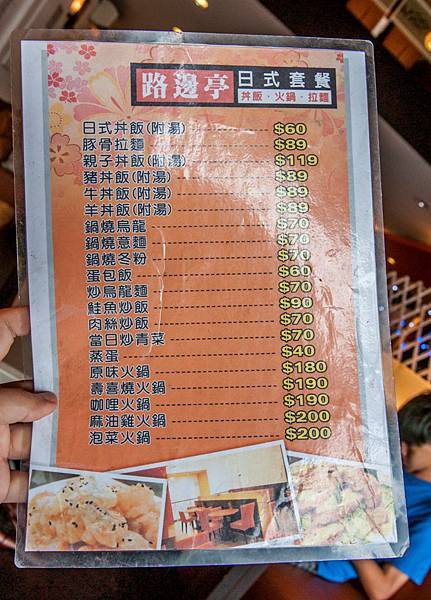 路邊亭 日式套餐
丼飯·火鍋·拉麵
日式丼飯(附湯) $60
豚骨拉麵 $89
親子丼飯(附湯) $119
豬丼飯(附湯) $89
牛丼飯(附湯) $89
羊丼飯(附湯) $89
鍋燒烏龍 $70
鍋燒意麵 $70
鍋燒冬粉 $70
蛋包飯 $60
炒烏龍麵 $70
鮭魚炒飯 $90
肉絲炒飯 $70
當日炒青菜 $70
蒸蛋 $40
原味火鍋 $180
壽喜燒火鍋 $190
咖哩火鍋 $190
麻油雞火鍋 $200
泡菜火鍋 $200